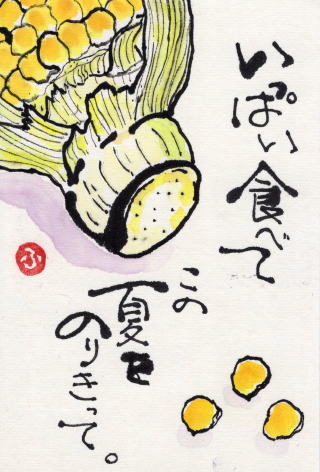 いっぱい食べて
この
夏を
のりきって。
ふ